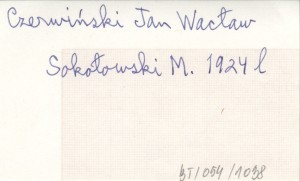 Czerwiński Jan Wacław
Sokołowski M. 1924 l
BT/054/1038